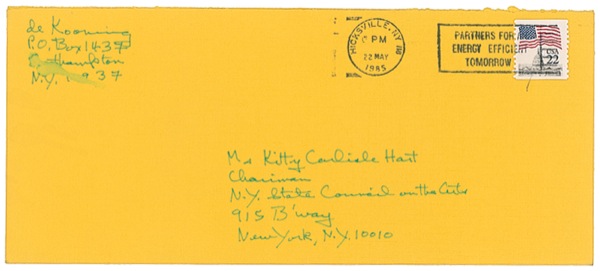 de Kooning
P.O. Box 1437
Hampton
N.Y. 937
HICKSVILLE, NY 118
PM
22 MAY
1985
PARTNERS FOR
ENERGY EFFICIENT
TOMORROW
USA
22
Ms Kitty Carlisle Hart
Chairman
N.Y. State Council on the Arts
915 B'way
New York, N.Y. 10010